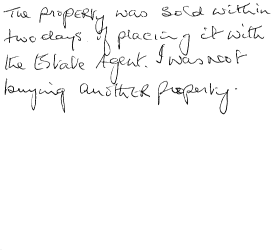 The property was sold within
two days of placing it with
the Estate Agent. I was not
buying another property.